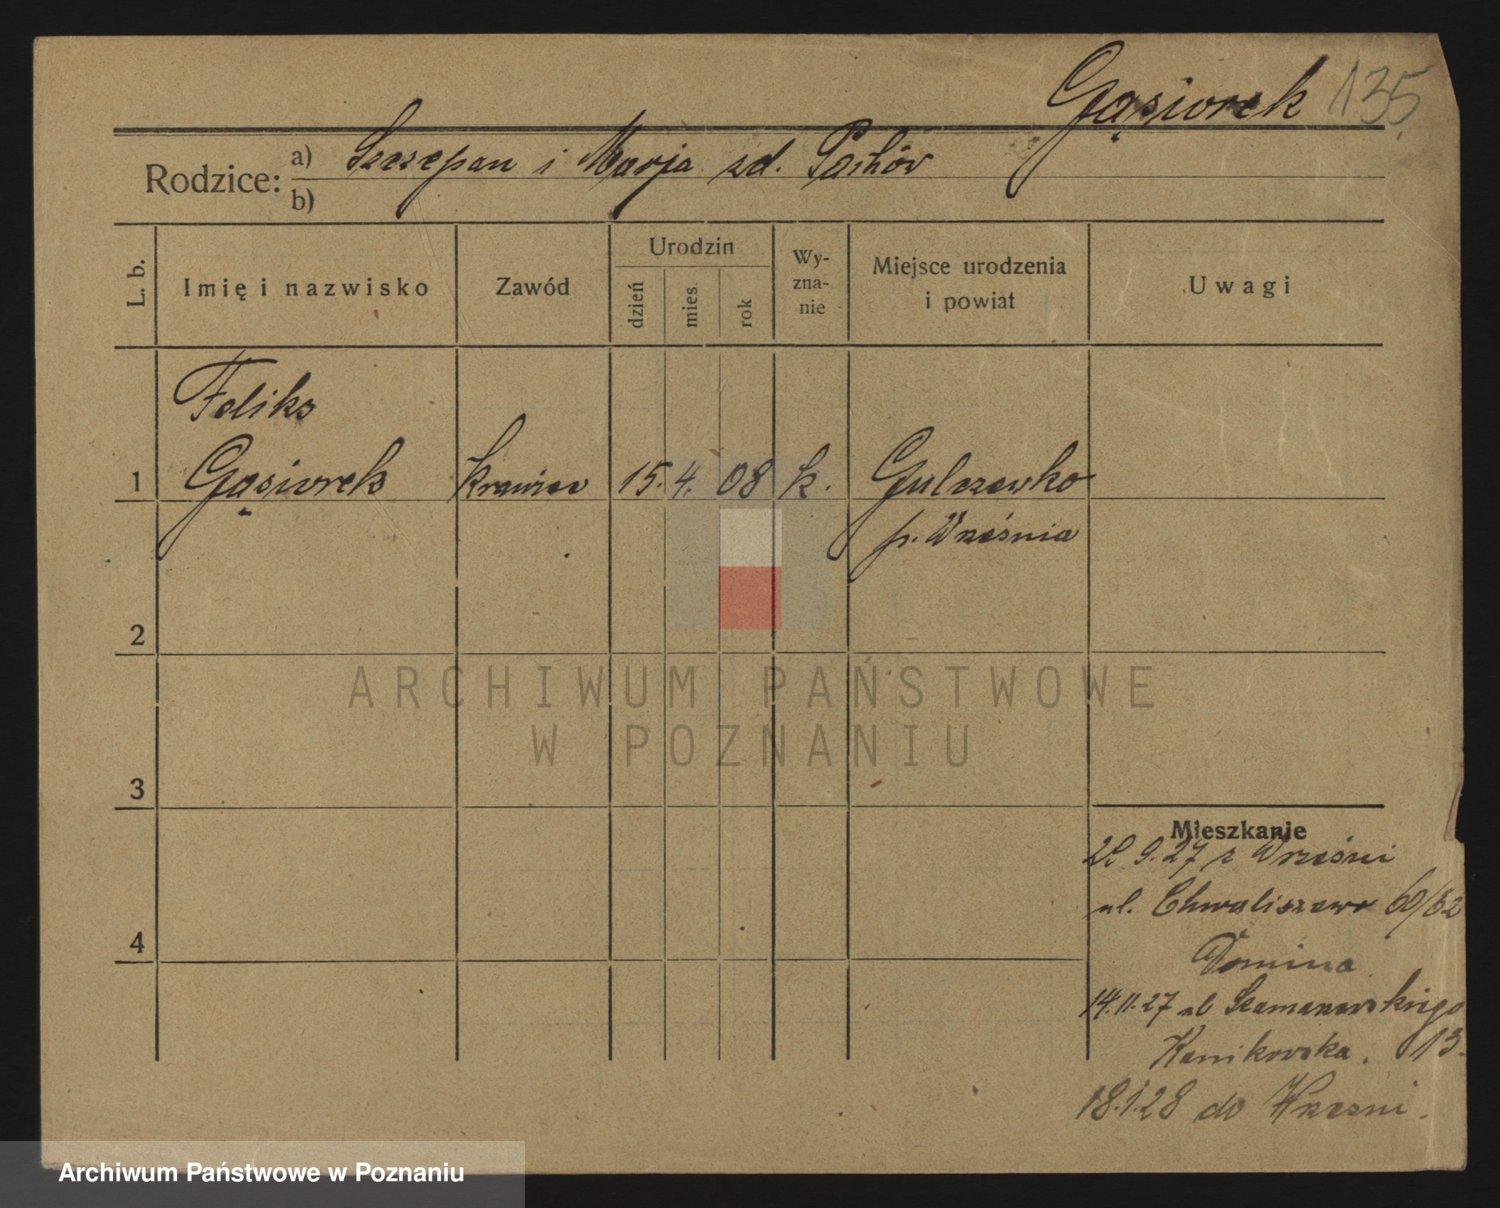 Gąsiorek 135
Rodzice: a) Szczepan i Marja zd. Pachór
b)
L. b.
Imię i nazwisko
Zawód
Urodzin
dzień
mies
rok
Wy-
zna-
nie
Miejsce urodzenia
i powiat
Uwagi
Feliks
1 Gąsiorek krawiec 15. 4. 08 k. Gulczewko
p. Września
2
ARCHIWUM PAŃSTWOWE
W POZNANIU
3
Mieszkanie
9.27 z Wrześni
ul. Chwaliszewo 60/62
Domina
4
14.11.27 ul Szamarzewskiego
13.
18.1.28 do Wrześni.
Archiwum Państwowe w Poznaniu